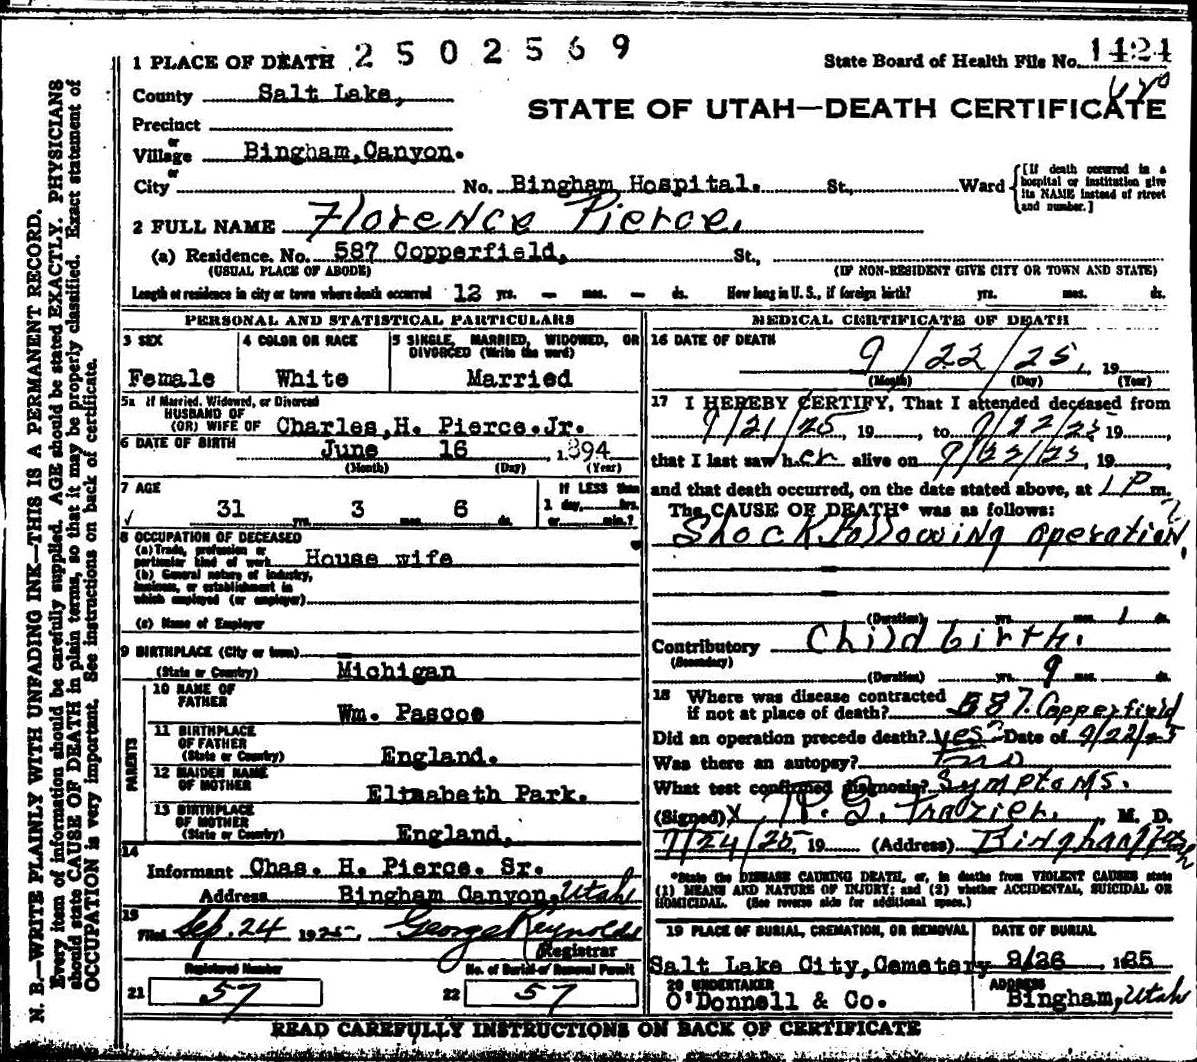 1 PLACE OF DEATH 2502569
State Board of Health File No. 1424
County Salt Lake,
STATE OF UTAH—DEATH CERTIFICATE
Precinct
or
Village Bingham, Canyon.
or
City No. Bingham Hospital. St., Ward
[If death occurred in a hospital or institution give its NAME instead of street and number.]
2 FULL NAME Florence Pierce.
(a) Residence. No. 587 Copperfield, St.,
(USUAL PLACE OF ABODE) (IF NON-RESIDENT GIVE CITY OR TOWN AND STATE)
Length of residence in city or town where death occurred 12 yrs. — mos. — ds. How long in U. S., if foreign birth? yrs. mos. ds.
PERSONAL AND STATISTICAL PARTICULARS
3 SEX
Female
4 COLOR OR RACE
White
5 SINGLE, MARRIED, WIDOWED, OR
DIVORCED (Write the word)
Married
5a If Married, Widowed, or Divorced
HUSBAND OF
(OR) WIFE OF Charles, H. Pierce. Jr.
6 DATE OF BIRTH June 16 1894
(Month) (Day) (Year)
7 AGE
31 yrs. 3 mos. 6 ds.
If LESS than
1 day, hrs.
or min.?
8 OCCUPATION OF DECEASED
(a) Trade, profession or
particular kind of work House wife
(b) General nature of industry,
business, or establishment in
which employed (or employer)
(c) Name of Employer
9 BIRTHPLACE (City or town)
(State or Country) Michigan
PARENTS
10 NAME OF
FATHER
Wm. Pascoe
11 BIRTHPLACE
OF FATHER
(State or Country) England.
12 MAIDEN NAME
OF MOTHER
Elizabeth Park.
13 BIRTHPLACE
OF MOTHER
(State or Country) England,
14
Informant Chas. H. Pierce. Sr.
Address Bingham Canyon, Utah
15
Filed Sep. 24 1925 George Reynolds
Registrar
Registered Number
21 57
No. of Burial or Removal Permit
22 57
MEDICAL CERTIFICATE OF DEATH
16 DATE OF DEATH
9/22/25, 19
(Month) (Day) (Year)
17 I HEREBY CERTIFY, That I attended deceased from
9/21/25, 19, to 9/22/25 19,
that I last saw her alive on 9/22/25, 19,
and that death occurred, on the date stated above, at 1 P m.
The CAUSE OF DEATH* was as follows:
Shock following operation,
(Duration) yrs. mos. 1 ds.
Contributory Childbirth.
(Secondary)
(Duration) yrs. 9 mos. ds.
18 Where was disease contracted
if not at place of death? 587. Copperfield
Did an operation precede death? yes Date of 9/22/25
Was there an autopsy? no
What test confirmed diagnosis? Symptoms.
(Signed) x P. G. Frazier. M. D.
9/24/25, 19 (Address) Bingham Utah
*State the DISEASE CAUSING DEATH, or, in deaths from VIOLENT CAUSES state
(1) MEANS AND NATURE OF INJURY; and (2) whether ACCIDENTAL, SUICIDAL OR
HOMICIDAL. (See reverse side for additional space.)
19 PLACE OF BURIAL, CREMATION, OR REMOVAL
Salt Lake City, Cemetery
DATE OF BURIAL
9/26 1925
20 UNDERTAKER
O'Donnell & Co.
ADDRESS
Bingham, Utah
READ CAREFULLY INSTRUCTIONS ON BACK OF CERTIFICATE
N. B.—WRITE PLAINLY WITH UNFADING INK—THIS IS A PERMANENT RECORD.
Every item of information should be carefully supplied. AGE should be stated EXACTLY. PHYSICIANS
should state CAUSE OF DEATH in plain terms, so that it may be properly classified. Exact statement of
OCCUPATION is very important. See instructions on back of certificate.